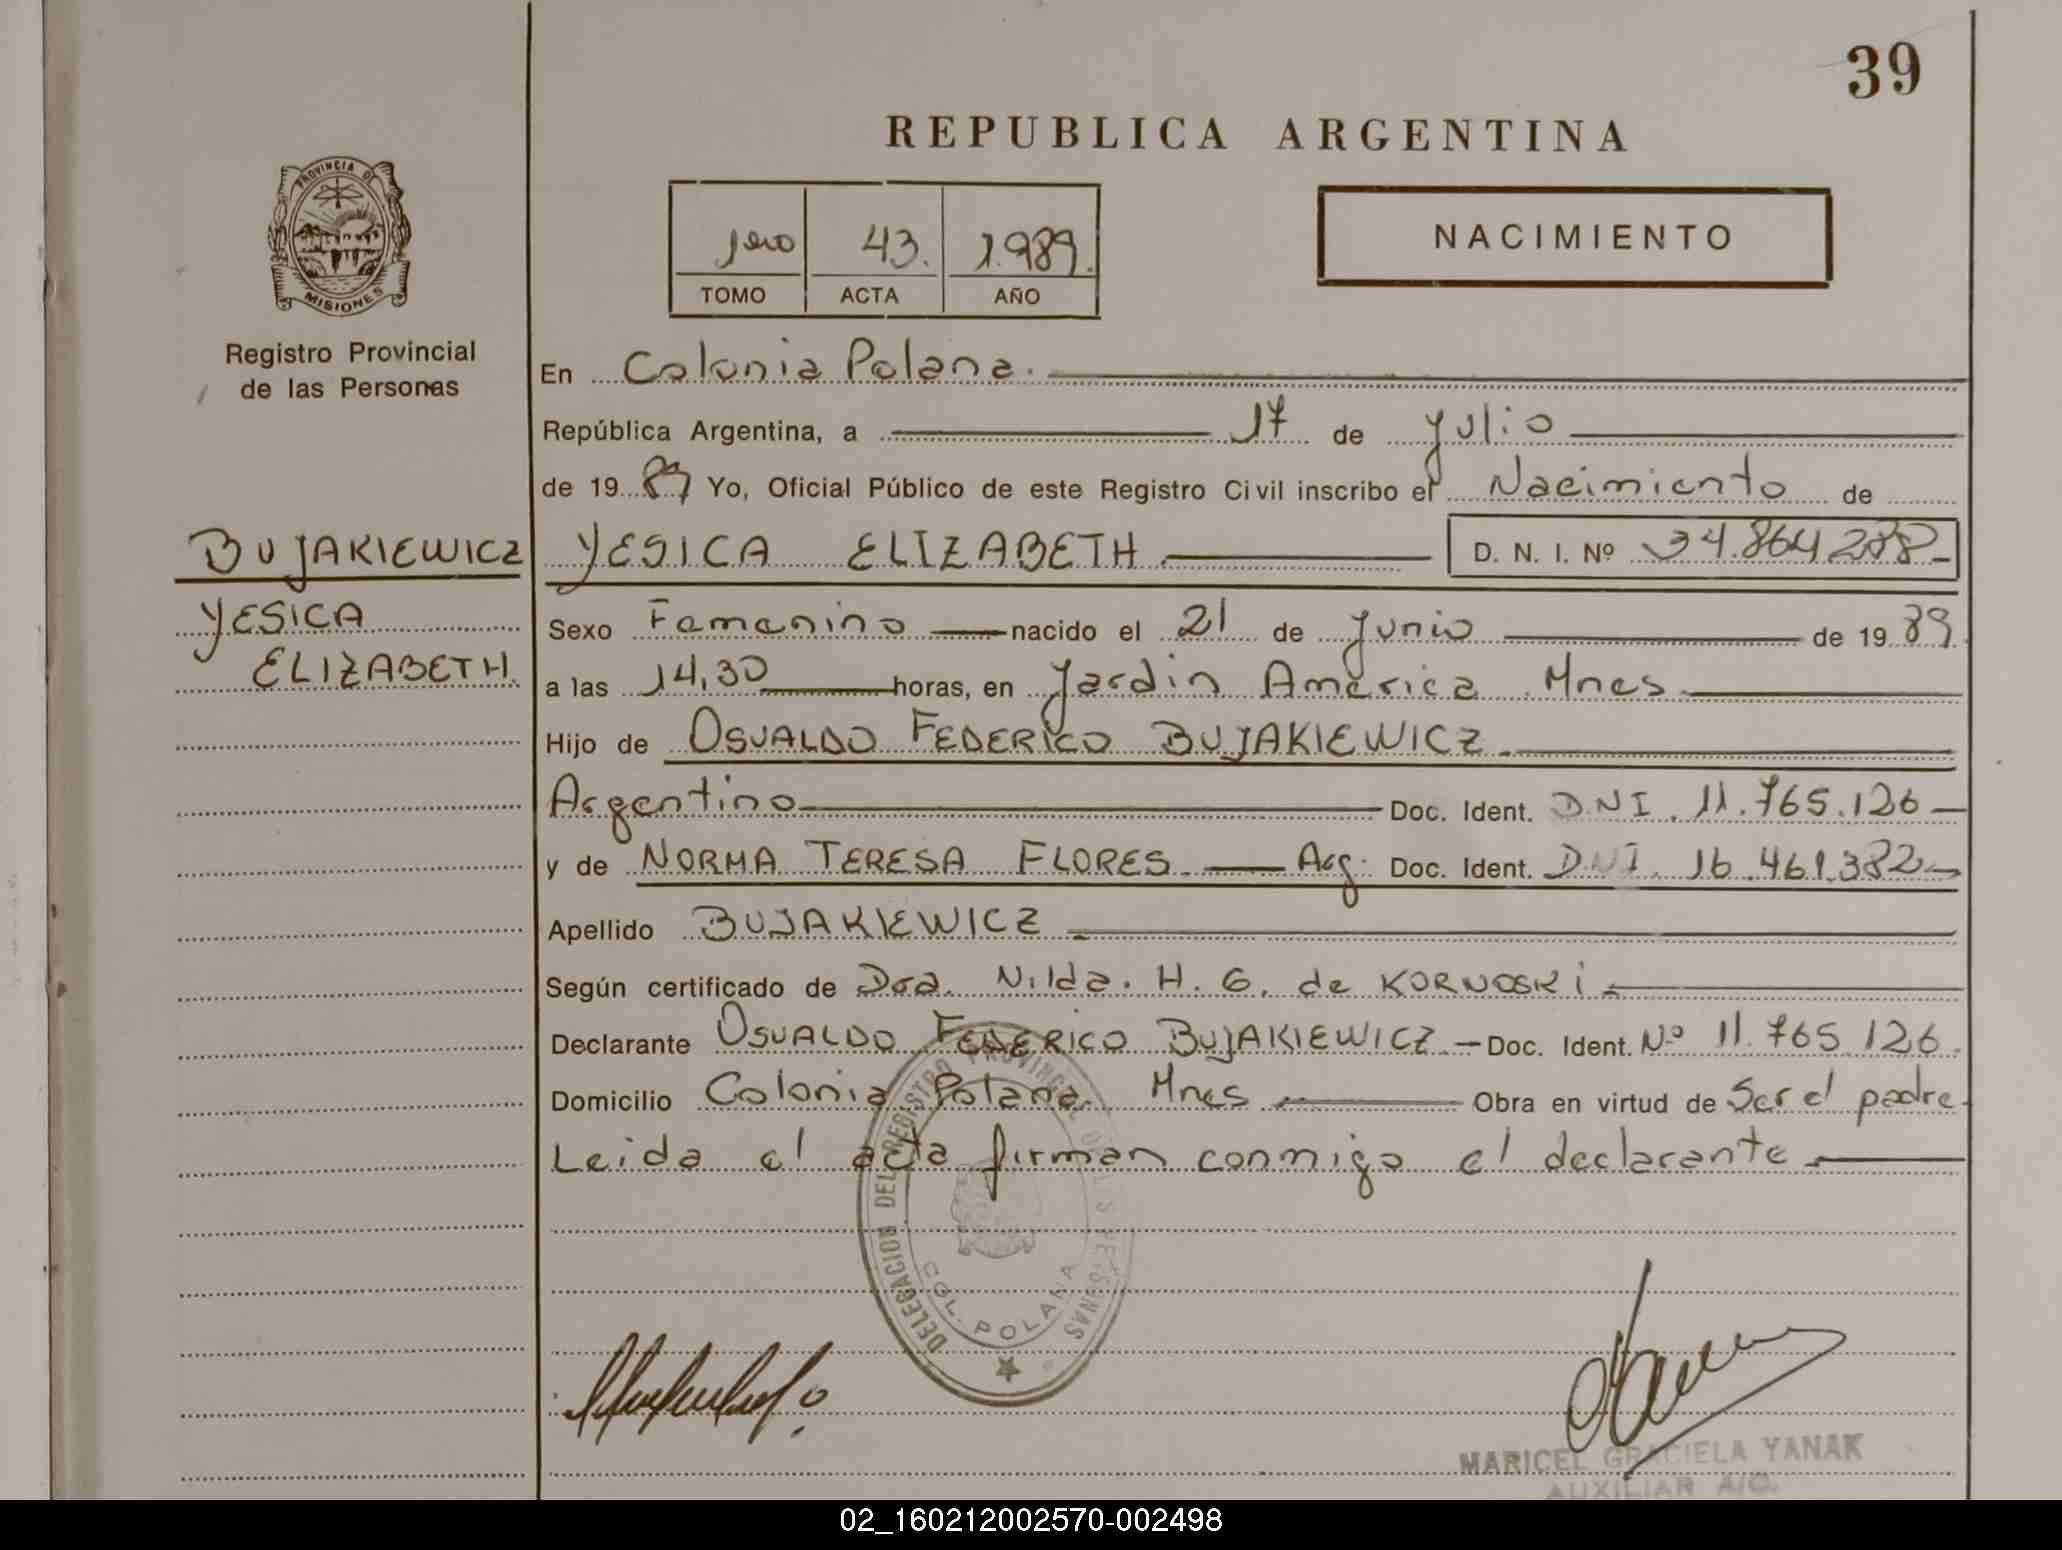 39
REPUBLICA ARGENTINA
PROVINCIA DE
MISIONES
Registro Provincial
de las Personas
1ero 43. 1.989.
TOMO ACTA AÑO
NACIMIENTO
En Colonia Polana.
República Argentina, a 17 de Julio
de 1989 Yo, Oficial Público de este Registro Civil inscribo el Nacimiento de
BUJAKIEWICZ YESICA ELIZABETH D. N. I. Nº 34.864.288
YESICA
ELIZABETH.
Sexo Femenino nacido el 21 de Junio de 1989.
a las 14,30 horas, en Jardin América Mnes
Hijo de OSVALDO FEDERICO BUJAKIEWICZ
Argentino Doc. Ident. DNI. 11.765.126
y de NORMA TERESA FLORES. Arg. Doc. Ident. DNI. 16.461.382
Apellido BUJAKIEWICZ
Según certificado de Dra. Nilda. H. G. de KORNOSKi
Declarante OSVALDO FEDERICO BUJAKIEWICZ. Doc. Ident. Nº 11.765.126.
Domicilio Colonia Polana. Mnes Obra en virtud de Ser el padre.
Leida el acta firman conmigo el declarante
DELEGACION DEL REGISTRO PROVINCIAL DE LAS PERSONAS
COL. POLANA
MARICEL GRACIELA YANAK
AUXILIAR A/C.
02_160212002570-002498